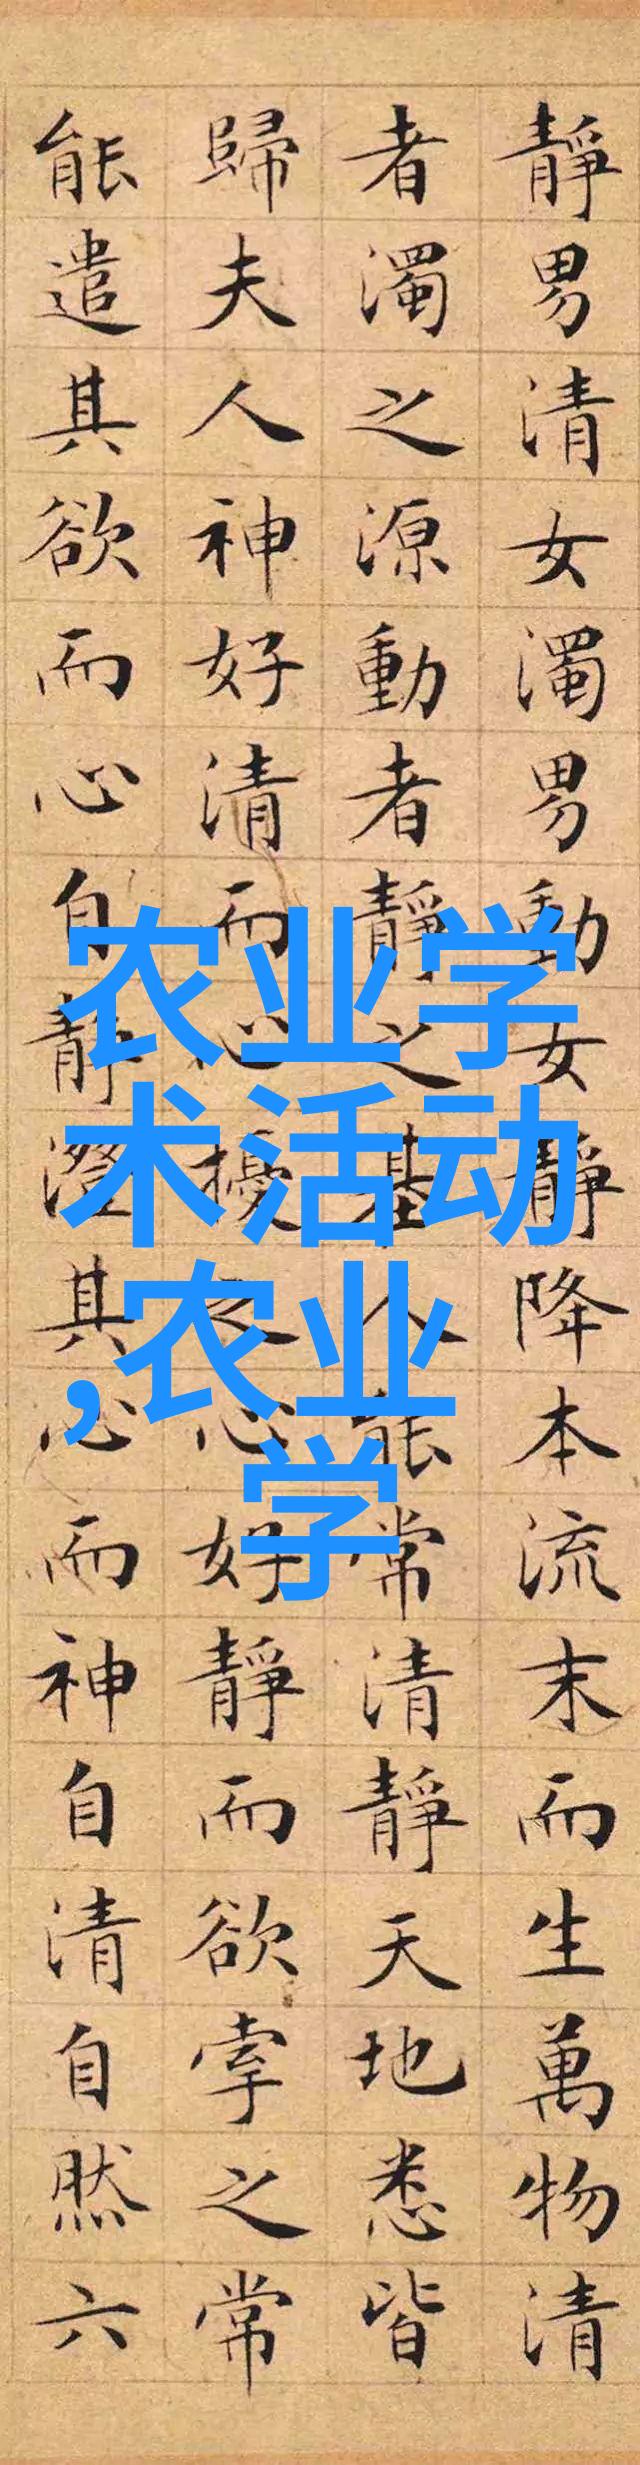 靜男清女濁男動女靜降本流末而生萬物清
者濁之源動者靜之基人能常清靜天地悉皆
歸夫人神好清而心擾之心好靜而欲牽之常
能遣其欲而心自靜澄其心而神自清自然六
农业学
术活动
,农业
学